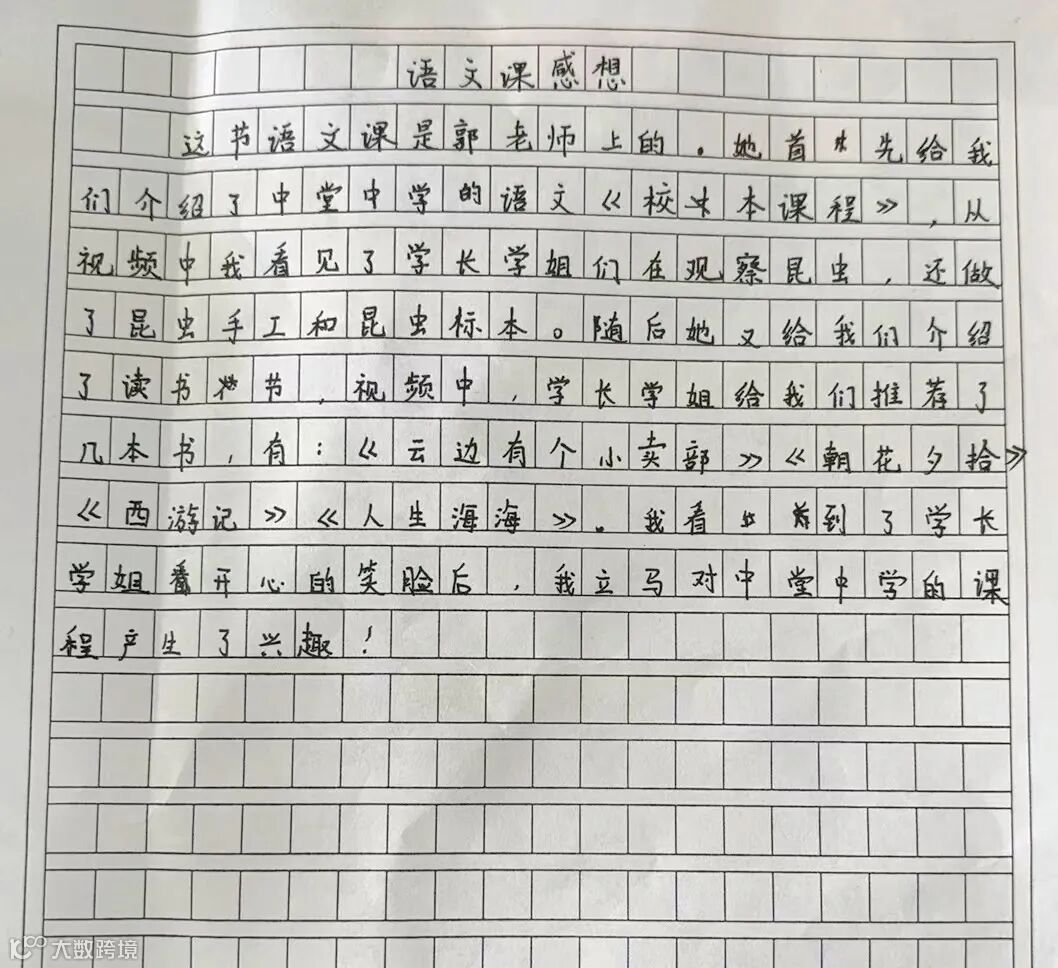 语文课感想
这节语文课是郭老师上的。她首先给我
们介绍了中堂中学的语文《校本课程》,从
视频中我看见了学长学姐们在观察昆虫,还做
了昆虫手工和昆虫标本。随后她又给我们介绍
了读书节,视频中,学长学姐给我们推荐了
几本书,有:《云边有个小卖部》《朝花夕拾》
《西游记》《人生海海》。我看到了学长
学姐开心的笑脸后,我立马对中堂中学的课
程产生了兴趣!
大数跨境